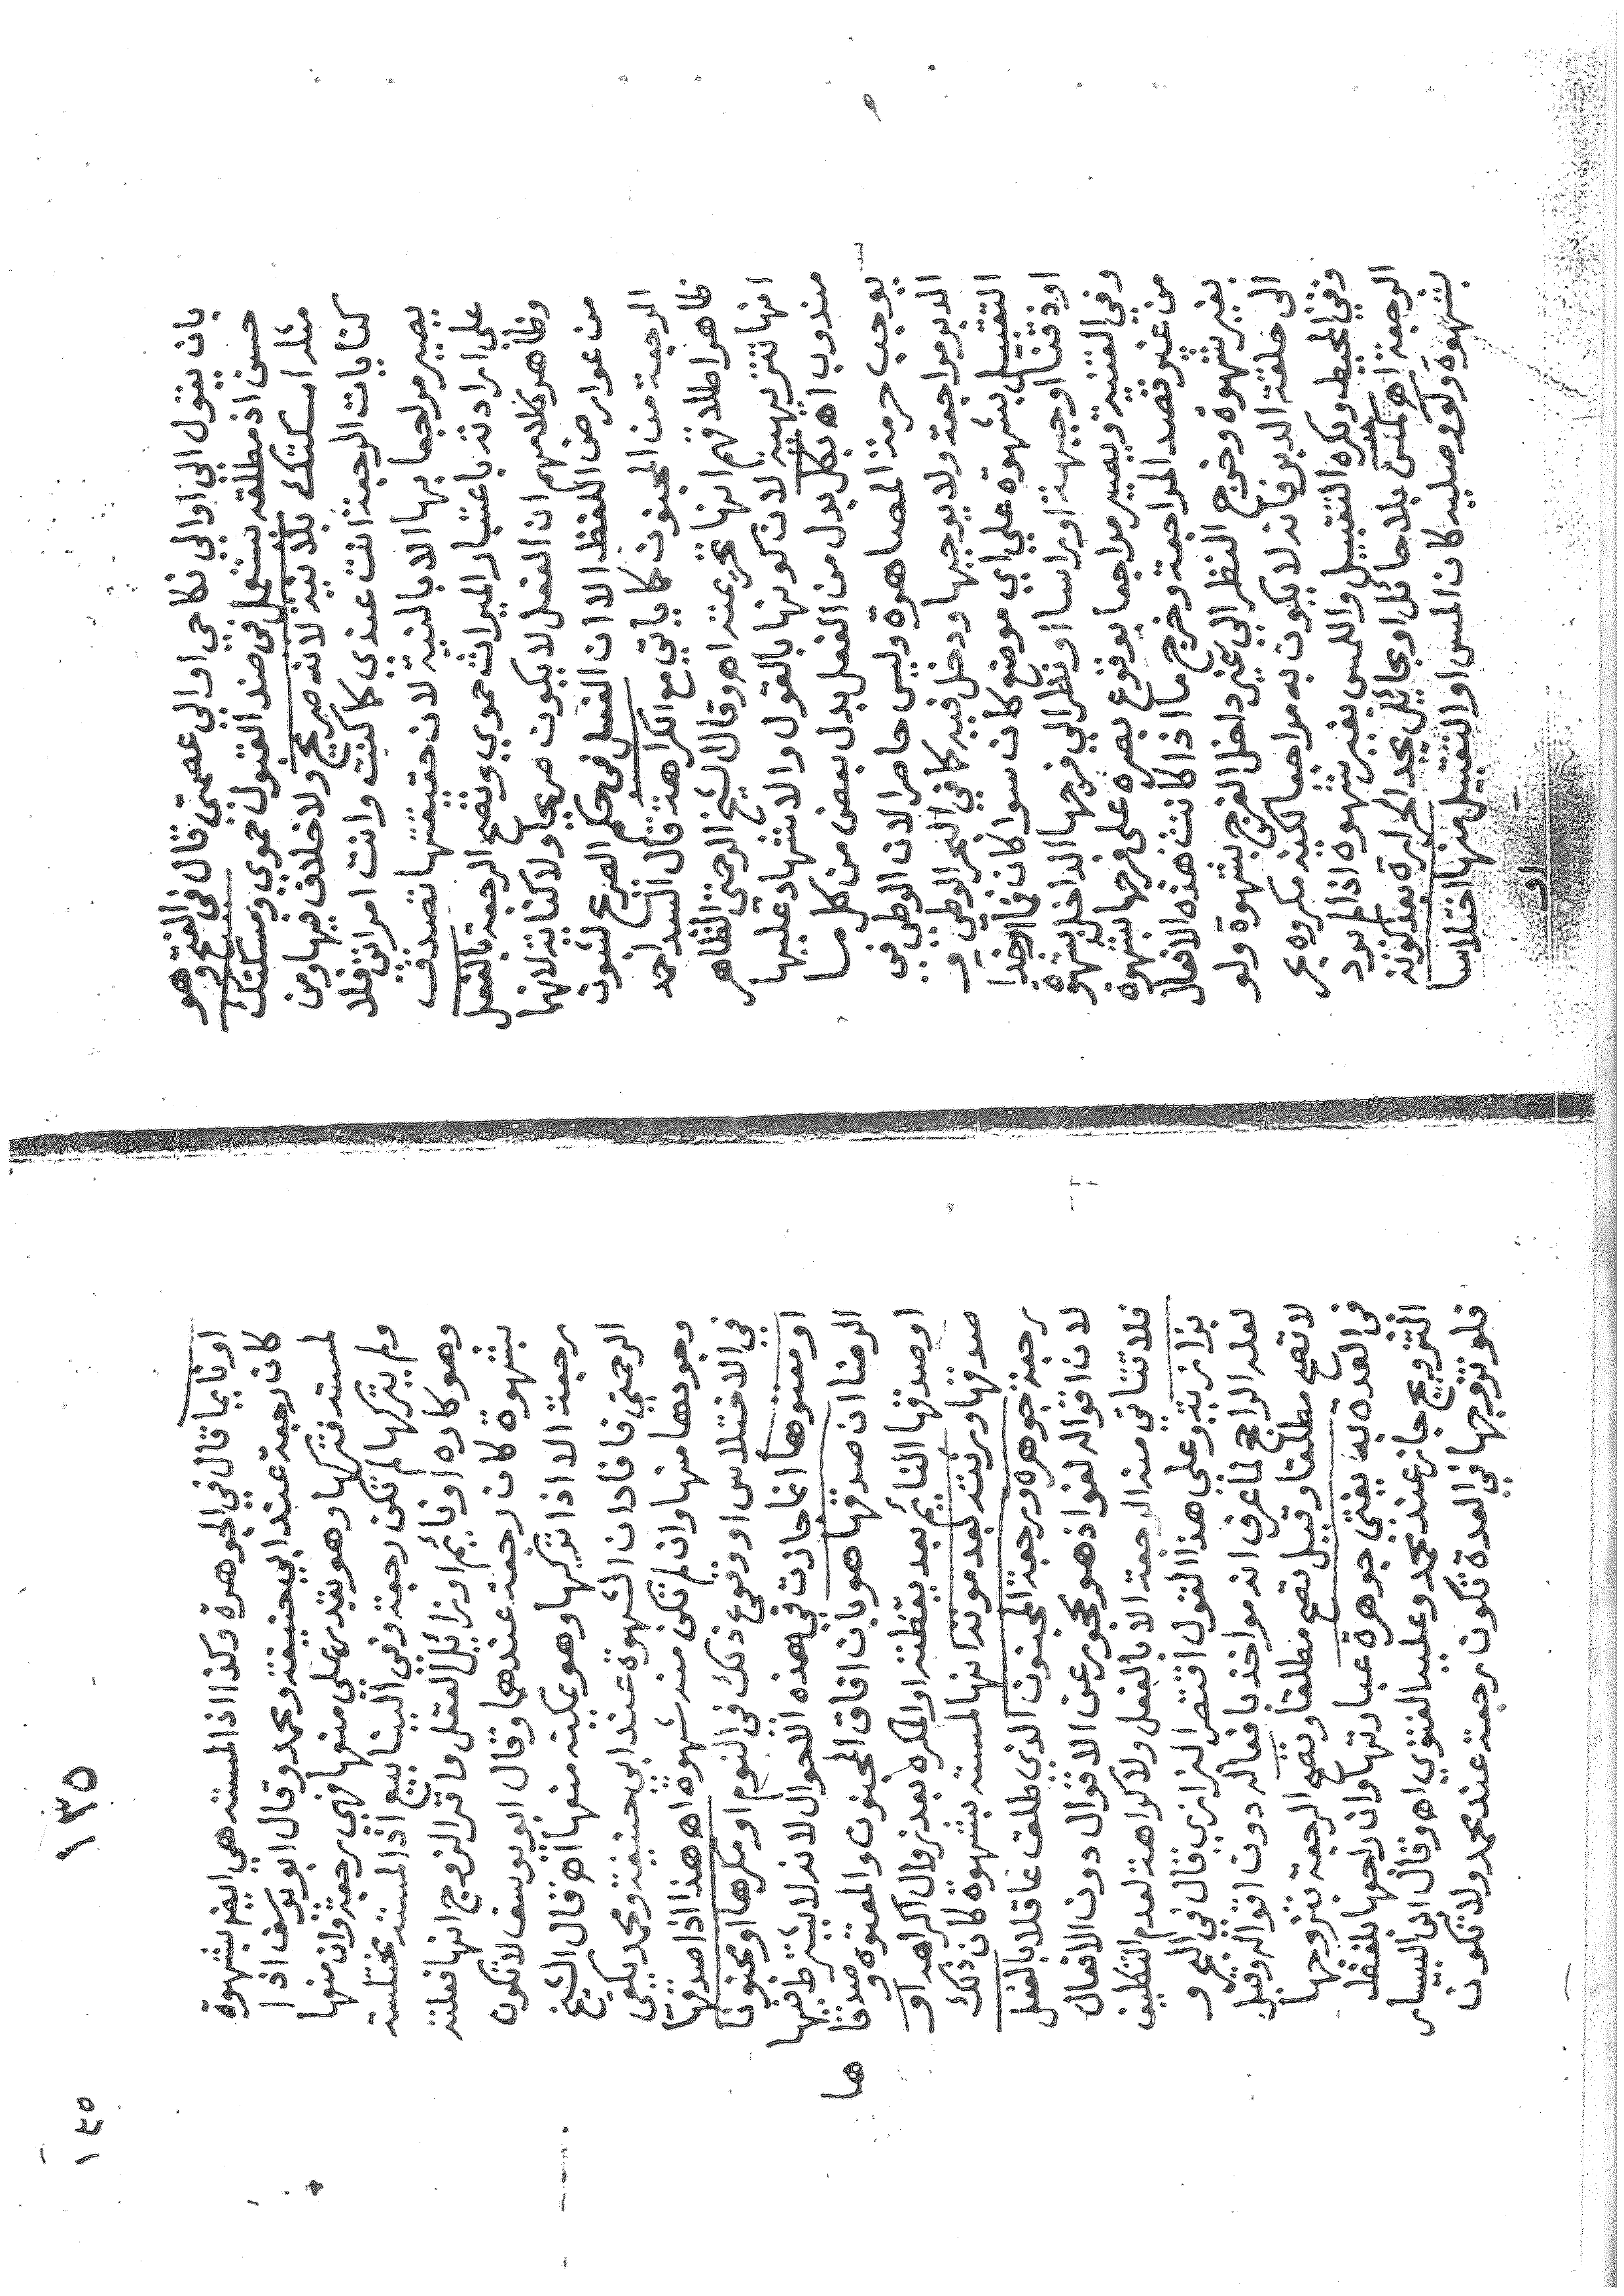 بان يقول الى او الى نكاحي او الى عصمتي قال في الفتح وهو
حسن اذ مطلقه يستعمل في ضد القبول حموي ومسكتك
مثل امسكتك بلا نية لانه صريح ولا خلاف فيها ومن
كنايات الرجعة انت عندى كما كنت وانت امراتي فلا
يصير مراجعا بها الا بالنية لان حقيقتها تصدق
على ارادته باعتبار الميراث حموي وتصح الرجعة بالفعل
وظاهر كلامهم ان الفعل لا يكون صريحا ولا كناية لانها
من عوارض اللفظ الا ان الفعل في حكم الصريح لثبوت
الرجعة من المجنون كما ياتي مع الكراهة قال السيد احمد
ظاهر اطلاقهم انها تحريمية اه وقال الشيخ الرحمتي الظاهر
انها تنزيهية لان كونها بالقول والاشهاد عليها
مندوب اه بكل بدل من الفعل بدل بعض من كل ما
يوجب حرمة المصاهرة وليس حاصرا لان الوطئ في
الدبر مراجعة ولا يوجبها ودخل فيه كما في البحر الوطئ و
التقبيل بشهوة على اي موضع كان سوا كان فما او خدا
او ذقنا او جبهة او راسا او نظر الى فرجها الداخل بشهوة
وفي القنية ويصير مراجعا بوقوع بصره على فرجها بشهوة
من غير قصد المراجعة وخرج ما اذا كانت هذه الافعال
بغير شهوة وخرج النظر الى غير داخل الفرج بشهوة ولو
الى حلقة الدبر فانه لا يكون به مراجعا لكنه مكروه بحر
وفي المحيط ويكره التقبيل واللمس بغير شهوة اذا لم يرد
الرجعة اه كمس بلا حائل او بحائل يجد الحرارة بعد كونه
بشهوة ولو كان المس او التقبيل منها اختلاسا
او
١٣٥
١٣٥
او نايما قال في الجوهرة وكذا اذا لمسته هي ايضا بشهوة
كان رجعة عند ابي حنيفة ومحمد وقال ابو يوسف اذا
لمسته فتركها وهو يقدر على منعها فهي رجعة وان منعها
ولم يتركها لم تكن رجعة وفي الينابيع اذا لمسته مختلسة
وهو كاره او نائم او زائل العقل واقر الزوج انها فعلته
بشهوة كان رجعة عندهما وقال ابو يوسف لا تكون
رجعة الا اذا تركها وهو يمكنه منعها اه قال الشيخ
الرحمتي فافاد ان الشهوة عند ابي حنيفة ومحمد يكفي
وجودها منها وان لم تكن منه شهوة اه هذا اذا صدقها
في الاختلاس او وقوع ذلك في النوم او مكرها او مجنونا
او معتوها انما جازت في هذه الاحوال لانه لا يشترط فيها
الرضا ان صدقها هو بان افاق المجنون والمعتوه وصدقا
ها
او صدقها النائم بعد يقظته او المكره بعد زوال اكراهه او
صدقها ورثته بعد موته انها لمسته بشهوة كان ذلك
رجعة جوهره ورجعة المجنون الذي طلق عاقلا بالفعل
لان اقواله لغو اذ هو محجور عن الاقوال دون الافعال
فلا تتاتي منه الرجعة الا بالفعل ولا كراهة لعدم التكليف
بزازية وعلى هذا القول اقتصر البزازي قال في البحر و
لعله الراجح لما عرف انه مواخذ بافعاله دون اقواله وقيل
لا تصح مطلقا وقيل تصح مطلقا وتصح الرجعة بتزوجها
في العدة به يفتى جوهرة عبارتها وان راجعها بلفظ
التزويج جاز عند محمد وعليه الفتوى اه وقال في الينابيع
فلو تزوجها في العدة تكون رجعة عند محمد ولا تكون